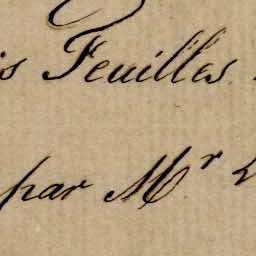 Feuilles
par Mr